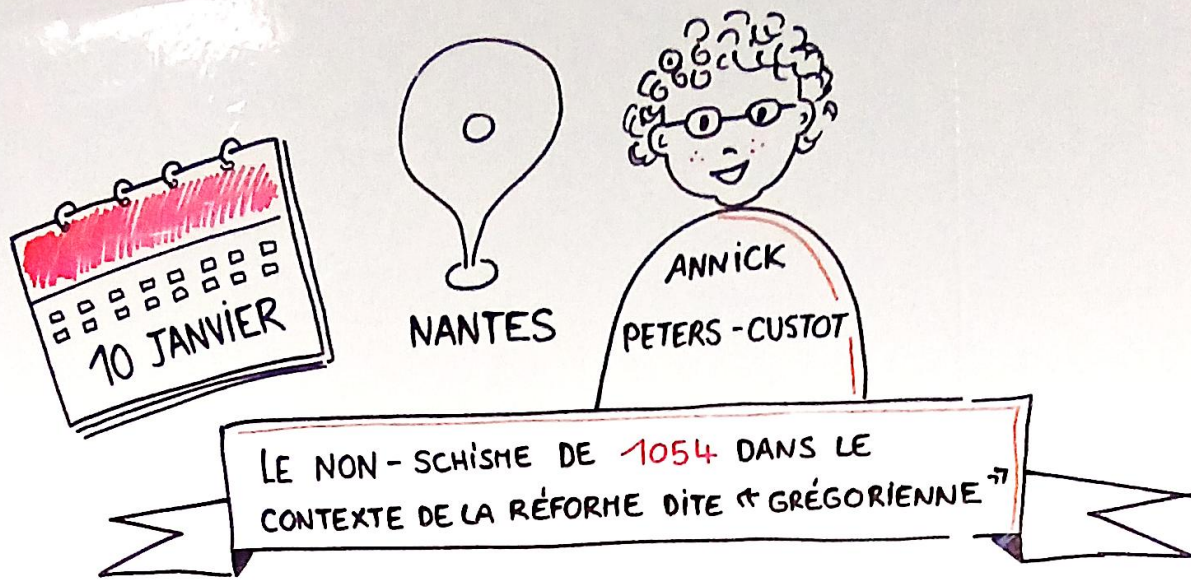 10 JANVIER
NANTES
ANNICK
PETERS-CUSTOT
LE NON-SCHISME DE 1054 DANS LE
CONTEXTE DE LA RÉFORME DITE "GRÉGORIENNE"